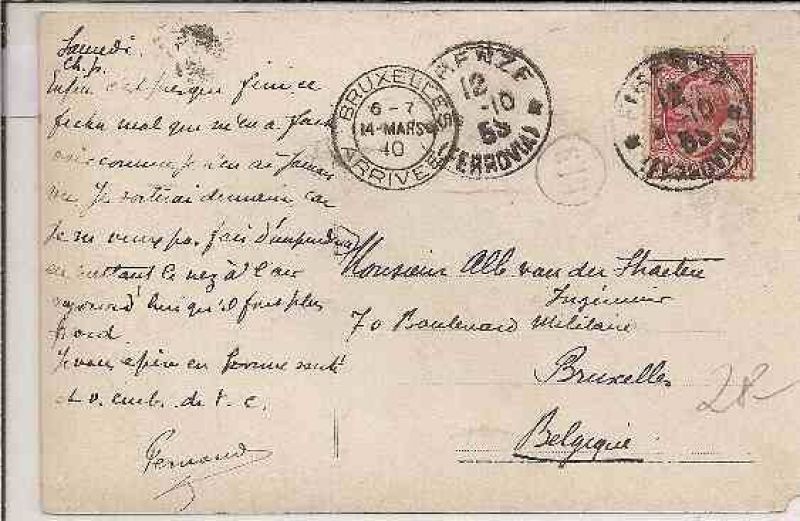 Samedi.
ch. p.
Enfin c'est presque fini ce
fichu mal que m'en a fait
voir comme je n'en ai jamais
vu. Je sortirai demain car
Je ne veux pas faire d'imprudence
en mettant le nez à l'air
aujourd'hui qu'il fait plus
froid
Je vous espère en bonne santé
et v. emb. de t. c.
Fernand
BRUXELLES
6-7
14-MARS
10
ARRIVEE
FIRENZE
12
-10
(FERROVIA)
FIRENZE
12
-10
(FERROVIA)
Monsieur Alb. van der Straeten
Ingénieur
70 Boulevard Militaire
Bruxelles
Belgique
28-